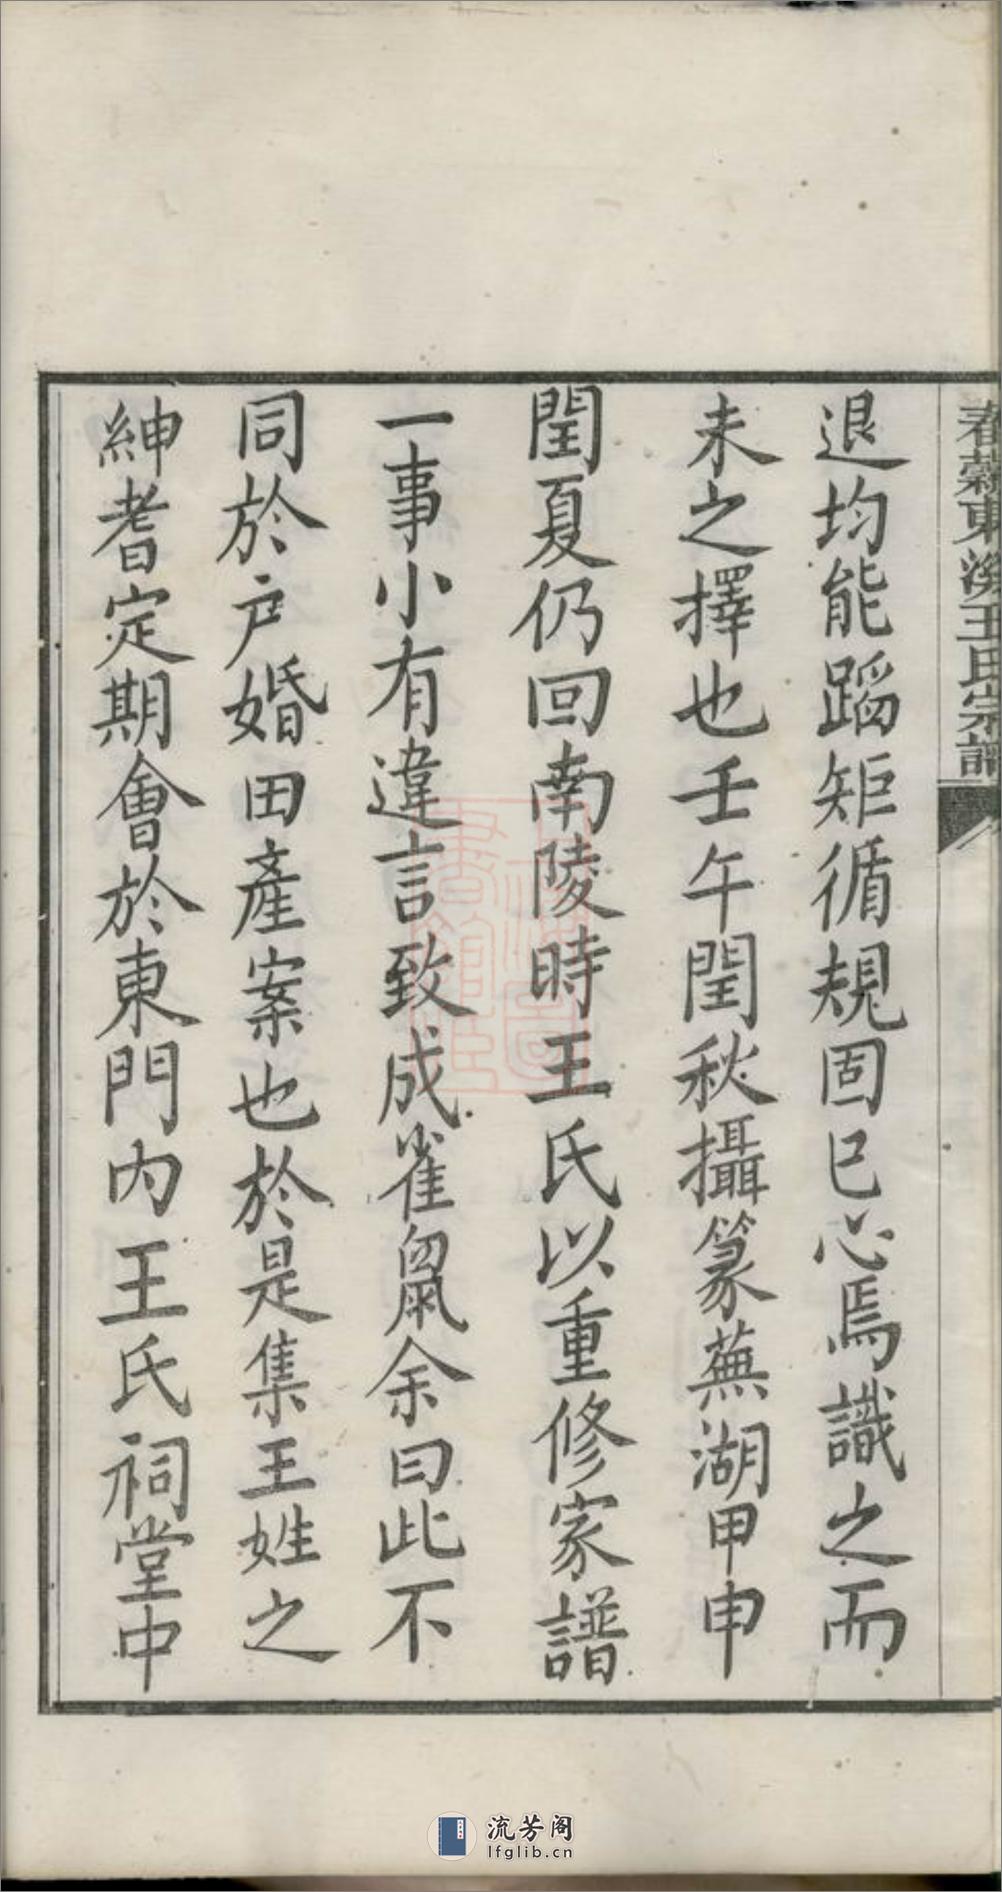 春穀東溪王氏宗譜
退均能蹈矩循規固已心焉識之而
未之擇也壬午閏秋攝篆蕪湖甲申
閏夏仍回南陵時王氏以重修家譜
一事小有違言致成雀鼠余曰此不
同於户婚田產案也於是集王姓之
紳耆定期會於東門內王氏祠堂中
流芳阁
lfglib.cn